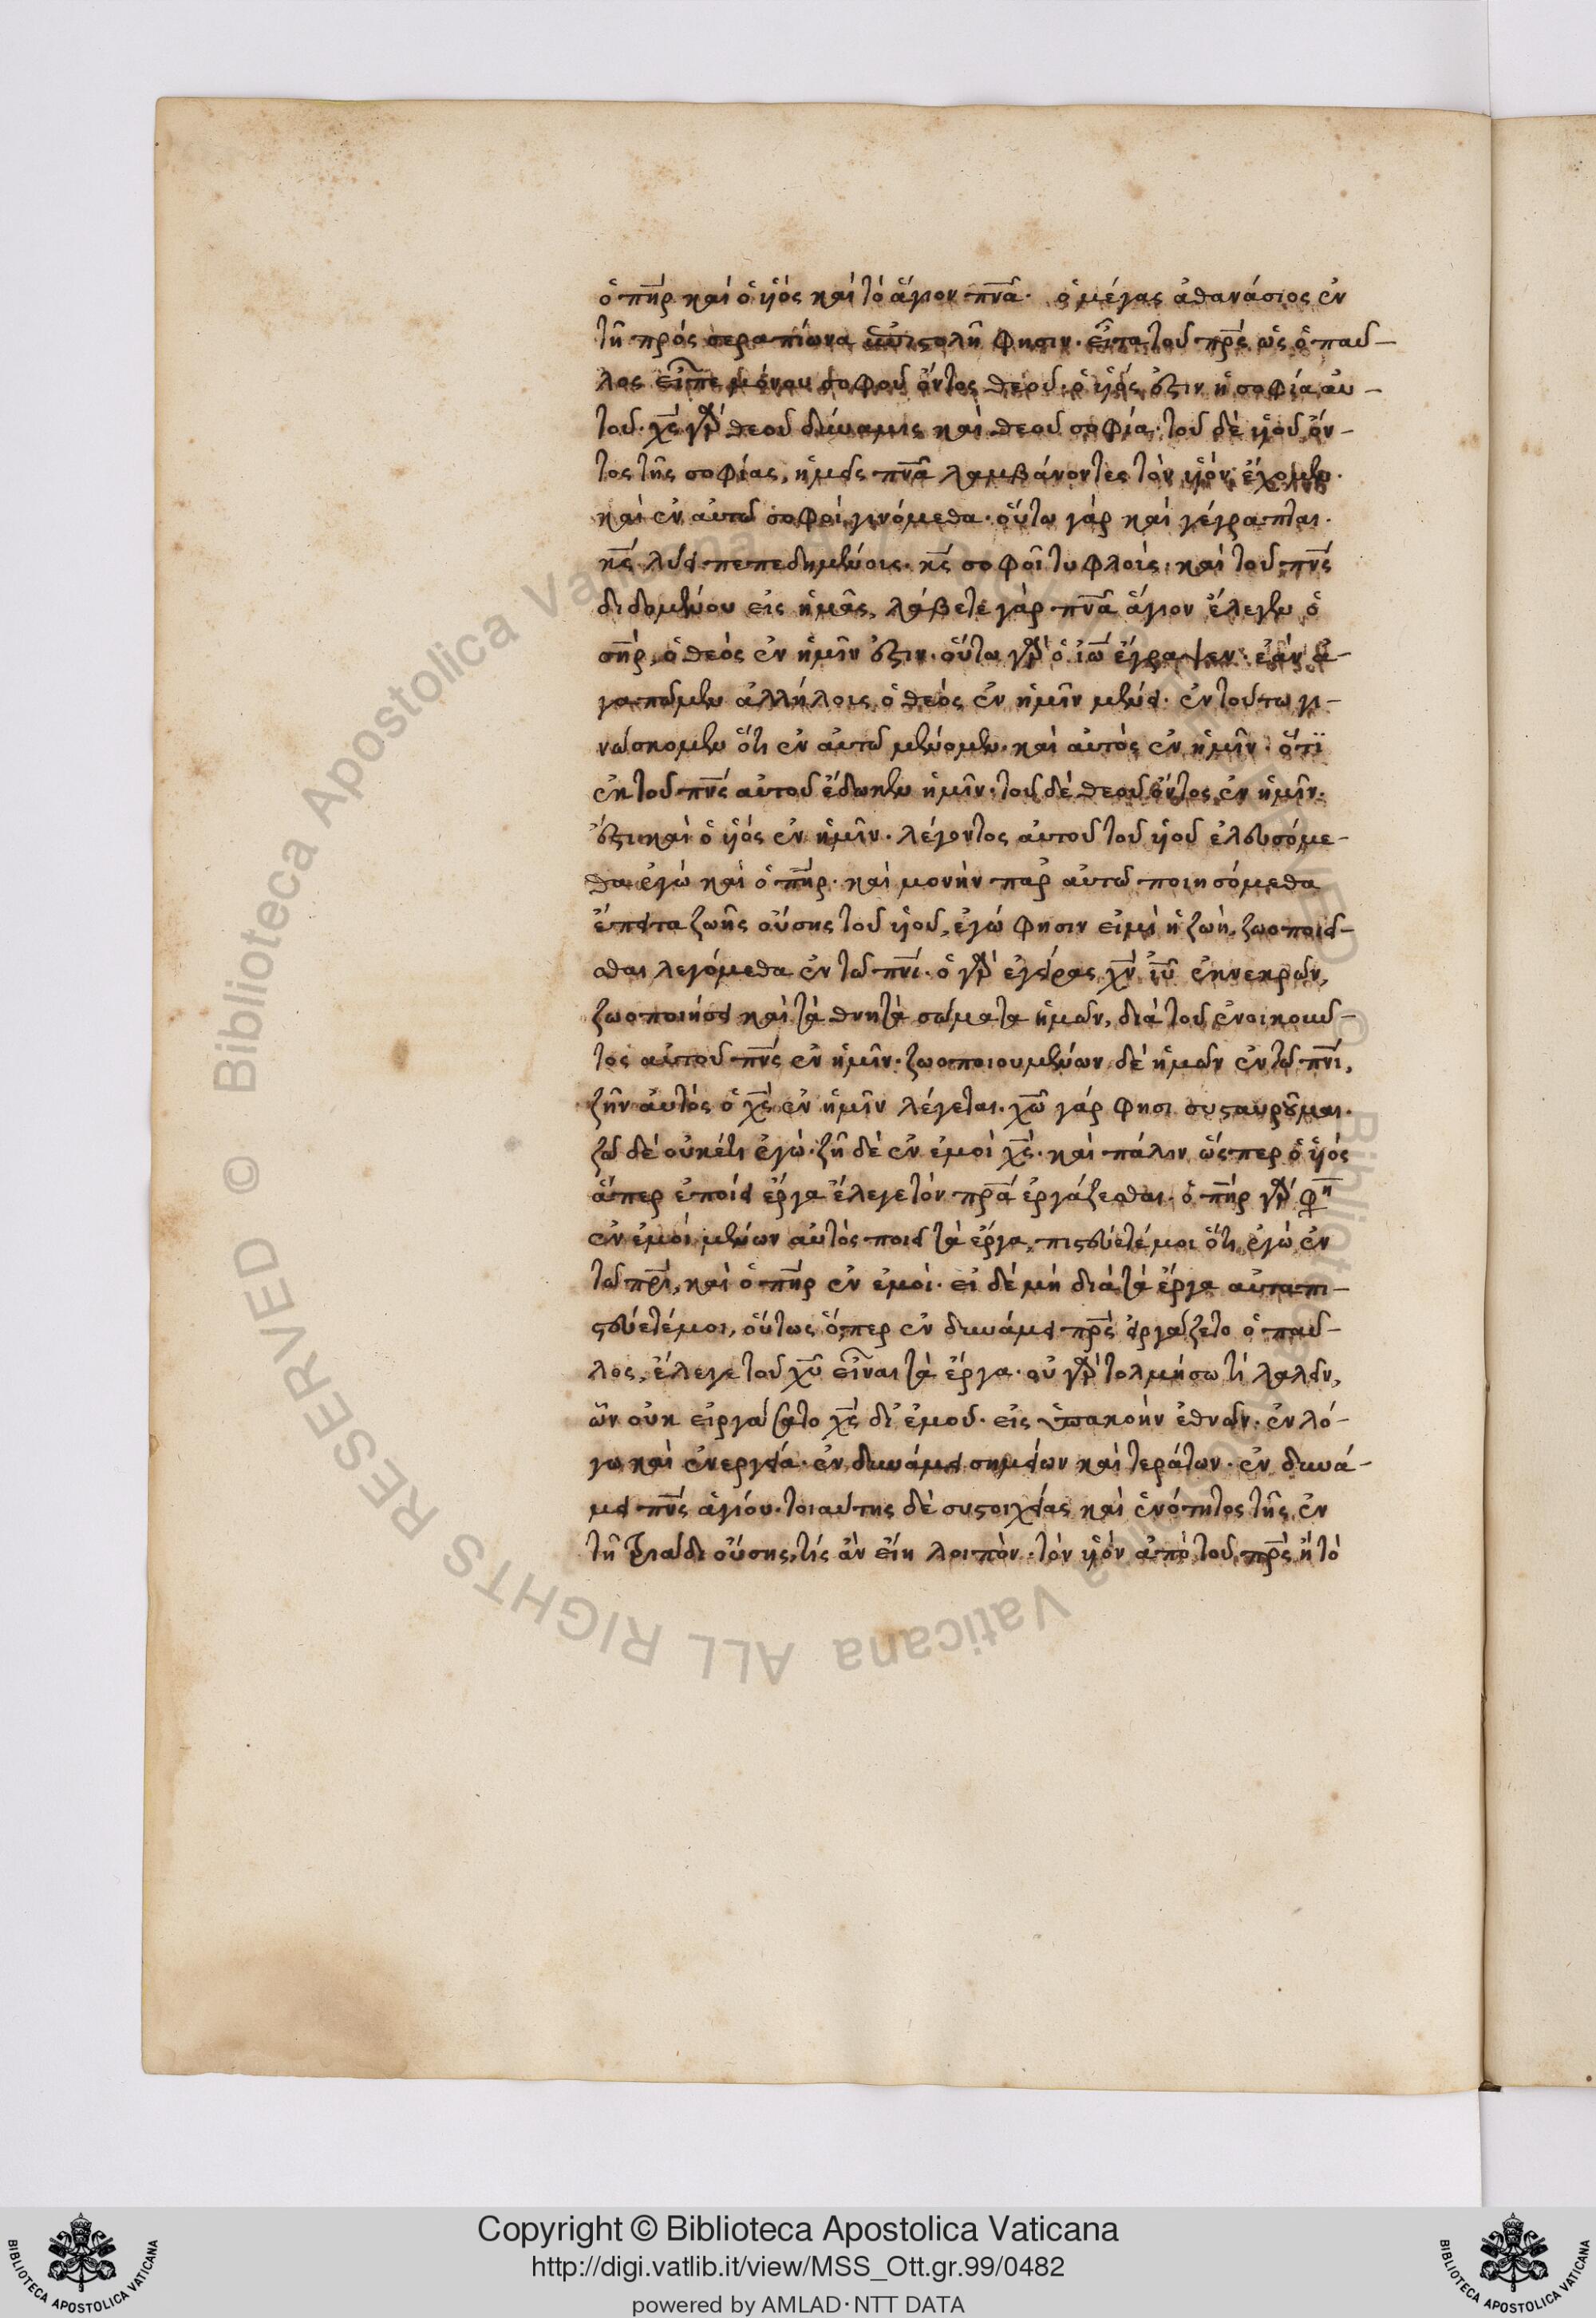 ὁ πη̅ρ καὶ ὁ ὑιὸς καὶ τὸ ἅγιον πνα̅· ὁ μέγας ἀθανάσιος ἐν
τῆ πρὸς σεραπίωνα ἐπιστολῆ φησιν· εἶτα τοῦ πρ̅ς ὡς ὁ παῦ-
λος εἶπε μόνου σοφοῦ ὄντος θεοῦ· ὁ ὑιός ἐστιν ἡ σοφία αὐ-
τοῦ· χς̅ γὰρ θεοῦ δύναμις καὶ θεοῦ σοφία· τοῦ δὲ ὑιοῦ ὄν-
τος τῆς σοφίας, ἡμεῖς πνα̅ λαμβάνοντες τὸν ὑιὸν ἔχομεν·
καὶ ἐν αὐτῶ σοφοὶ γινόμεθα· οὕτω γὰρ καὶ γέγραπται·
κς̅ λύει πεπεδημένοις· κς̅ σοφοῖ τυφλοὶς· καὶ τοῦ πνς̅
διδομένου εἰς ἡμᾶς, λάβετε γὰρ πνα̅ ἅγιον ἔλεγεν ὁ
ση̅ρ, ὁ θεὸς ἐν ἡμῖν ἐστιν· οὕτω γὰρ ὁ ἰω̅ ἔγραψεν· ἐὰν ἀ-
γαπῶμεν ἀλλήλοις ὁ θεὸς ἐν ἡμῖν μένει· ἐν τούτω γι-
νώσκομεν ὅτι ἐν αὐτῶ μένομεν· καὶ αὐτὸς ἐν ἡμῖν· ὅτϊ
ἐκ τοῦ πνς̅ αὐτοῦ ἔδωκεν ἡμῖν· τοῦ δὲ θεοῦ ὄντος ἐν ἡμῖν·
ἔστι καὶ ὁ ὑιὸς ἐν ἡμῖν· λέγοντος αὐτοῦ τοῦ ὑιοῦ ἐλευσόμε-
θα ἐγὼ καὶ ὁ πη̅ρ· καὶ μονὴν παρ αὐτῶ ποιησόμεθα
ἔπειτα ζωῆς οὔσης τοῦ ὑιοῦ, ἐγώ φησιν εἰμὶ ἡ ζωὴ, ζωοποιεῖ-
σθαι λεγόμεθα ἐν τῶ πνι̅· ὁ γὰρ ἐγείρας χν̅ ιυ̅ ἐκ νεκρῶν,
ζωοποιήσει καὶ τὰ θνητὰ σώματα ἡμῶν, διὰ τοῦ ἐνοικοῦν-
τος αὐτοῦ πνς̅ ἐν ἡμῖν· ζωοποιουμένων δὲ ἡμῶν ἐν τῶ πνι̅,
ζῆν αὐτὸς ὁ χς̅ ἐν ἡμῖν λέγεται· χω̅ γάρ φησι συσταυροῦμαι·
ζῶ δὲ οὐκέτι ἐγὼ· ζῆ δὲ ἐν ἐμοὶ χς̅· καὶ πάλιν ὥσπερ ὁ ὑιὸς
ἅπερ ἐποίει ἔργα ἔλεγε τὸν πρα̅ ἐργάζεσθαι· ὁ πη̅ρ γὰρ φη
ἐν ἐμοὶ μένων αὐτὸς ποιεῖ τὰ ἔργα, πιστεύετέ μοι ὅτι ἐγὼ ἐν
τῶ πρι̅, καὶ ὁ πη̅ρ ἐν ἐμοὶ· εἰ δὲ μὴ διὰ τὰ ἔργα αὐτα πι-
στεύετέ μοι, οὕτως ὅπερ ἐν δυνάμει πρ̅ς εἰργάζετο ὁ παῦ-
λος, ἔλεγε τοῦ χυ̅ εἶναι τὰ ἔργα· οὐ γὰρ τολμήσω τὶ λαλεῖν,
ὧν οὐκ εἰργάσατο χς̅ δι ἐμοῦ· εἰς ὑπακοὴν ἐθνῶν· ἐν λό-
γω καὶ ἐνεργεία· ἐν δυνάμει σημείων καὶ τεράτων· ἐν δυνά-
μει πνς̅ ἁγίου· τοιαύτης δὲ συστοιχίας καὶ ἑνότητος τῆς ἐν
τῆ τριάδι οὔσης, τίς ἂν εἴη λοιπὸν· τὸν ὑιὸν ἀπὸ τοῦ πρ̅ς ἢ τὸ
© Biblioteca Apostolica Vaticana ALL RIGHTS RESERVED
Copyright © Biblioteca Apostolica Vaticana
http://digi.vatlib.it/view/MSS_Ott.gr.99/0482
powered by AMLAD·NTT DATA
BIBLIOTECA APOSTOLICA VATICANA
BIBLIOTECA APOSTOLICA VATICANA